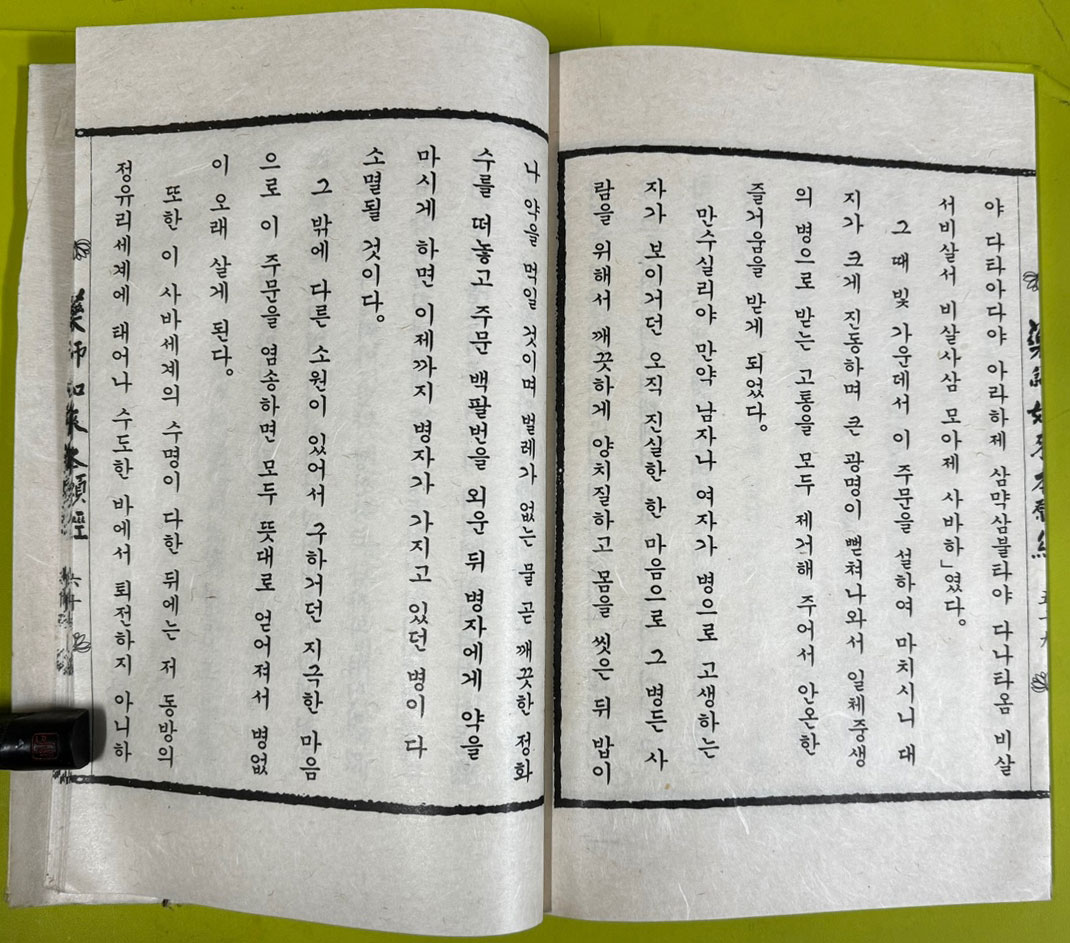 야 다타아다야 아라하제 삼먁삼블타야 다냐타옴 비살
서비살서 비살사삼 모아제 사바하」였다。
그 때 빛 가운데서 이 주문을 설하여 마치시니 대
지가 크게 진동하며 큰 광명이 뻗쳐나와서 일체중생
의 병으로 받는 고통을 모두 제거해 주어서 안온한
즐거움을 받게 되었다。
만수실리야 만약 남자나 여자가 병으로 고생하는
자가 보이거던 오직 진실한 한 마음으로 그 병든 사
람을 위해서 깨끗하게 양치질하고 몸을 씻은 뒤 밥이
나 약을 먹일 것이며 벌레가 없는 물 곧 깨끗한 정화
수를 떠놓고 주문 백팔번을 외운 뒤 병자에게 약을
마시게 하면 이제까지 병자가 가지고 있던 병이 다
소멸될 것이다。
그 밖에 다른 소원이 있어서 구하거던 지극한 마음
으로 이 주문을 염송하면 모두 뜻대로 얻어져서 병없
이 오래 살게 된다。
또한 이 사바세계의 수명이 다한 뒤에는 저 동방의
정유리세계에 태어나 수도한 바에서 퇴전하지 아니하
藥師如來本願經